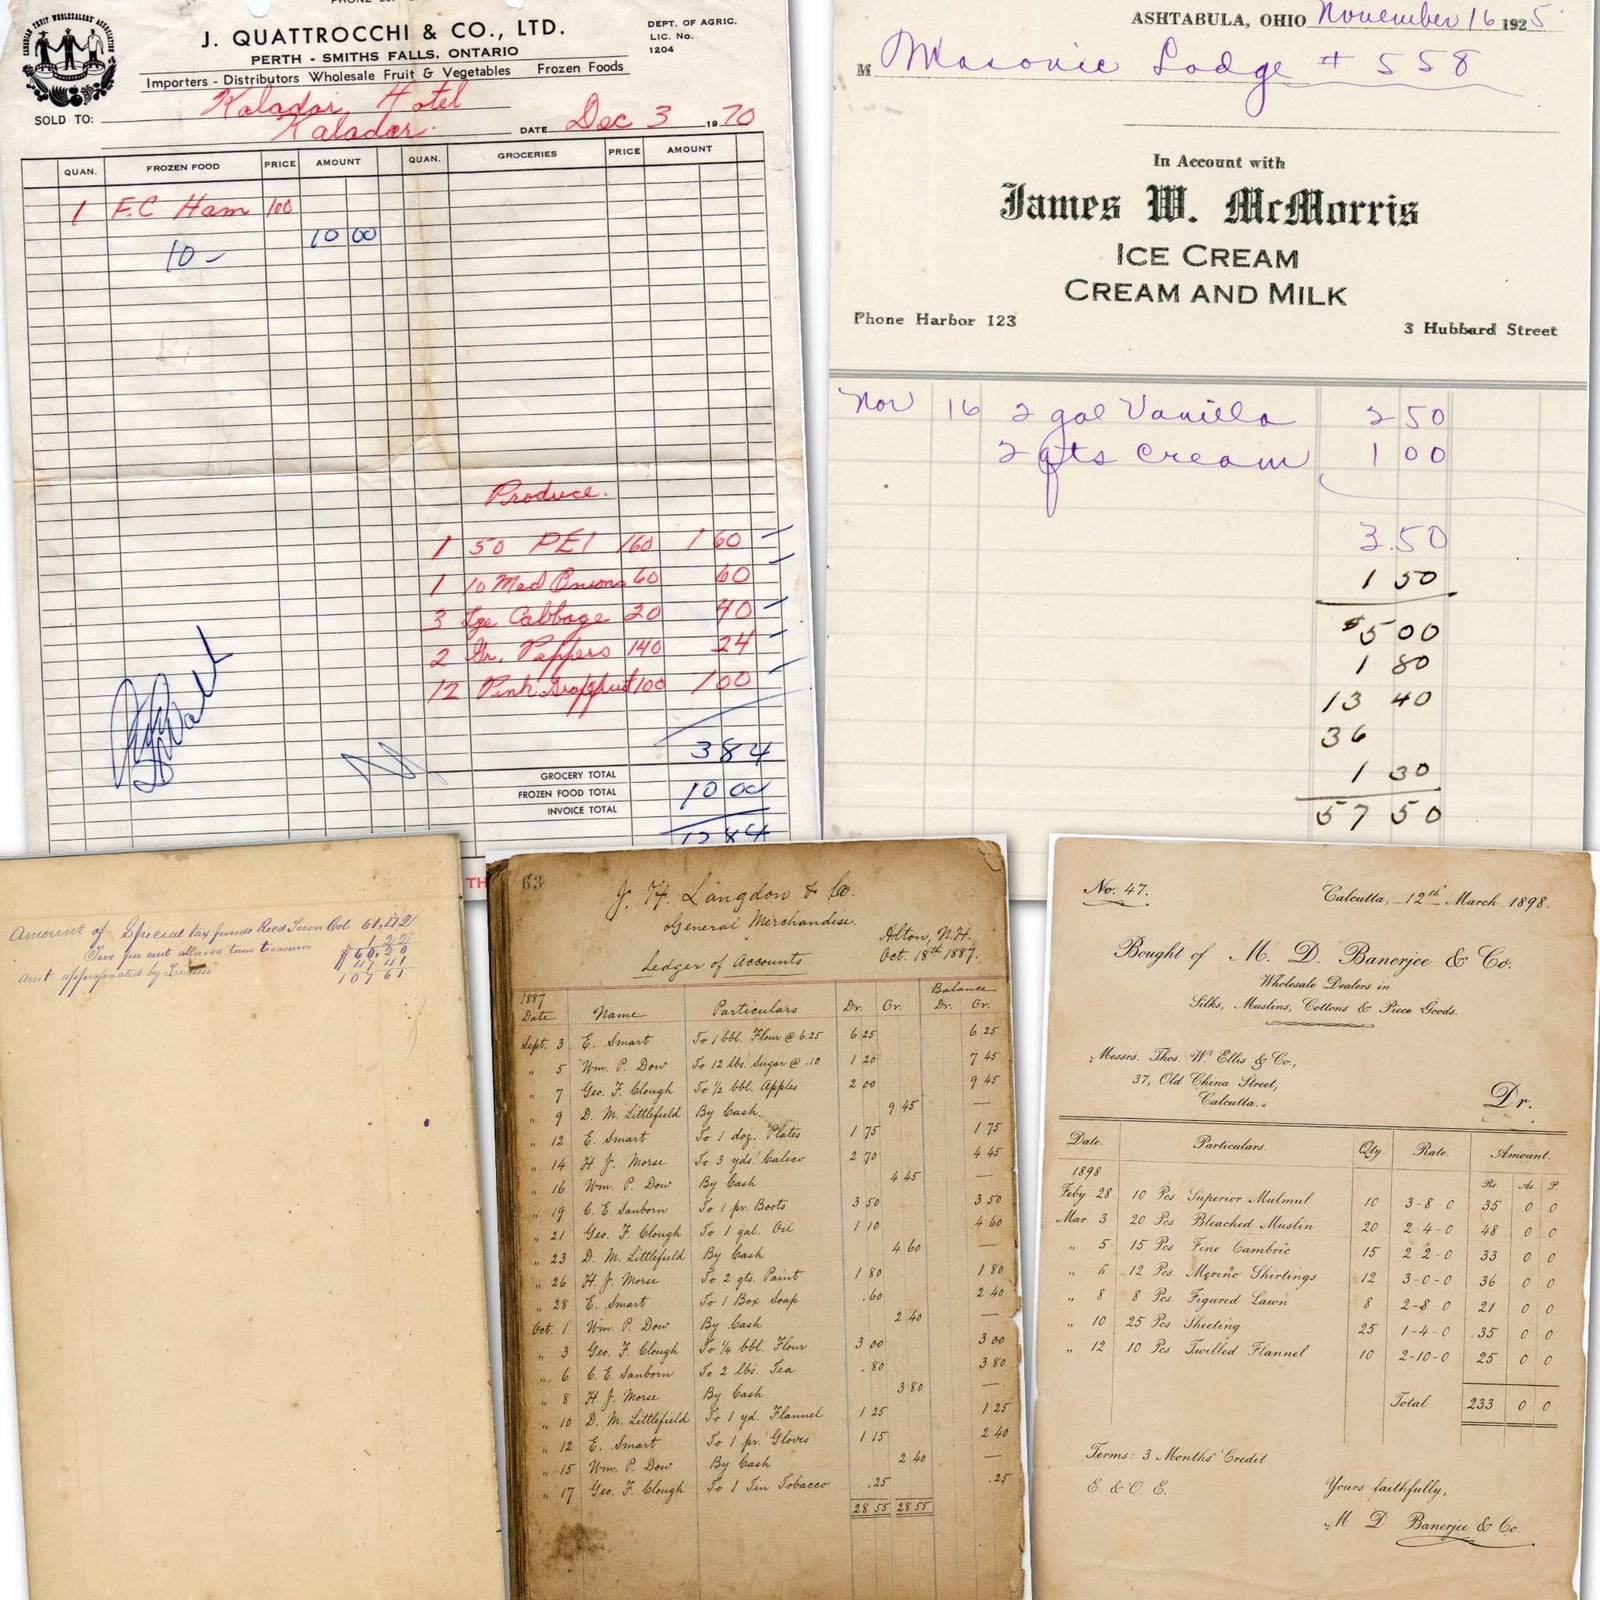 J. QUATTROCCHI & CO., LTD.
PERTH - SMITHS FALLS, ONTARIO
Importers - Distributors Wholesale Fruit & Vegetables Frozen Foods
DEPT. OF AGRIC.
LIC. No.
1204
SOLD TO: Kaladar Hotel
Kaladar.
DATE Dec 3 1970
QUAN. FROZEN FOOD PRICE AMOUNT QUAN. GROCERIES PRICE AMOUNT
1 F.C Ham 100
10 00
10 -
Produce.
1 50 PEI 160 1 60
1 10 Med Onions 60 60
3 Lge Cabbage 20 40
2 Gr. Peppers 140 24
12 Pink Grapfruit 100 100
3 84
GROCERY TOTAL
FROZEN FOOD TOTAL 10 00
INVOICE TOTAL
TH
ASHTABULA, OHIO November 16 1925
M Masonic Lodge # 558
In Account with
James W. McMorris
ICE CREAM
CREAM AND MILK
Phone Harbor 123 3 Hubbard Street
Nov 16 2 gal Vanilla 2 50
2 qts cream 1 00
3.50
1 50
$5 00
1 80
13 40
36
1 30
57 50
Amount of Special tax funds Recd Town Col
Two per cent allowed town treasurer
Amt appropriated by Trustees
107 61
63
J. H. Langdon & Co.
General Merchandise.
Alton, N.H.
Oct. 18th 1887.
Ledger of Accounts
1887 Balance
Date Name Particulars Dr. Cr. Dr. Cr.
Sept. 3 E. Smart To 1 bbl. Flour @ 6.25 6 25 6 25
„ 5 Wm. P. Dow To 12 lbs. Sugar @ .10 1 20 7 45
„ 7 Geo. F. Clough To ½ bbl. Apples 2 00 9 45
„ 9 D. M. Littlefield By Cash 9 45 —
„ 12 E. Smart To 1 doz. Plates 1 75 1 75
„ 14 H. J. Morse To 3 yds. Calico 2 70 4 45
„ 16 Wm. P. Dow By Cash 4 45 —
„ 19 C. E. Sanborn To 1 pr. Boots 3 50 3 50
„ 21 Geo. F. Clough To 1 gal. Oil 1 10 4 60
„ 23 D. M. Littlefield By Cash 4 60 —
„ 26 H. J. Morse To 2 qts. Paint 1 80 1 80
„ 28 E. Smart To 1 Box Soap .60 2 40
Oct. 1 Wm. P. Dow By Cash 2 40 —
„ 3 Geo. F. Clough To ¼ bbl. Flour 3 00 3 00
„ 6 C. E. Sanborn To 2 lbs. Tea .80 3 80
„ 8 H. J. Morse By Cash 3 80 —
„ 10 D. M. Littlefield To 1 yd. Flannel 1 25 1 25
„ 12 E. Smart To 1 pr. Gloves 1 15 2 40
„ 15 Wm. P. Dow By Cash 2 40 —
„ 17 Geo. F. Clough To 1 Tin Tobacco .25 .25
28 55 28 55
No. 47. Calcutta, 12th March 1898.
Bought of M. D. Banerjee & Co.
Wholesale Dealers in
Silks, Muslins, Cottons & Piece Goods.
Messrs. Thos. W. Ellis & Co.,
37, Old China Street,
Calcutta.
Dr.
Date. Particulars. Qty. Rate. Amount.
1898 Rs. As. P.
Feby 28 10 Pcs Superior Mulmul 10 3-8-0 35 0 0
Mar. 3 20 Pcs Bleached Muslin 20 2-4-0 48 0 0
„ 5 15 Pcs Fine Cambric 15 2-2-0 33 0 0
„ 12 Pcs Merino Shirtings 12 3-0-0 36 0 0
„ 8 8 Pcs Figured Lawn 8 2-8 0 21 0 0
„ 10 25 Pcs Sheeting 25 1-4-0 35 0 0
„ 12 10 Pcs Twilled Flannel 10 2-10-0 25 0 0
Total 233 0 0
Terms: 3 Months' Credit
E. & O. E. Yours faithfully,
M D Banerjee & Co.